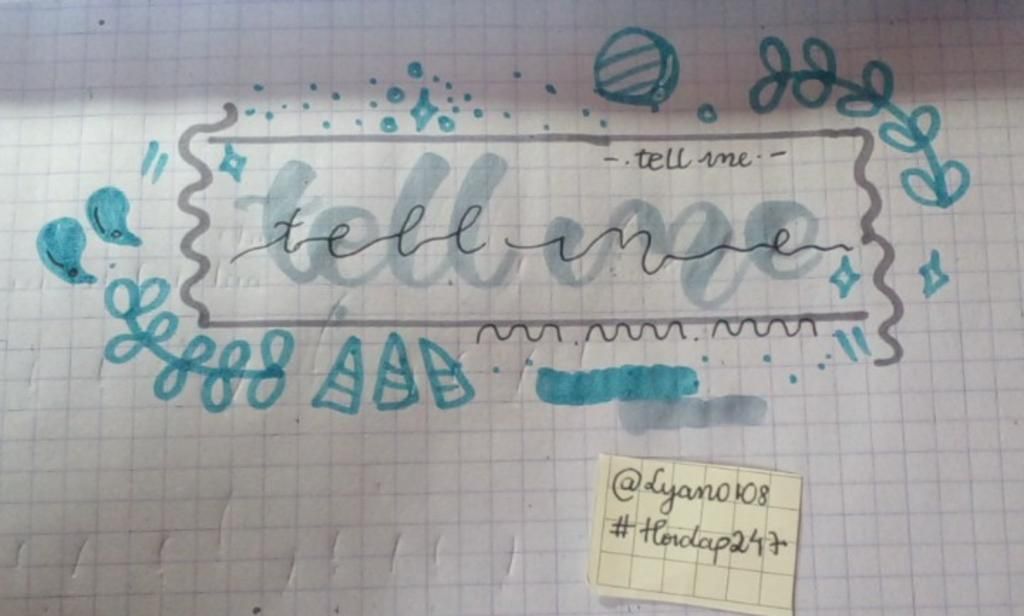 -. tell me. -
tell me
tell me
@Lyan0108
#Hoidap247